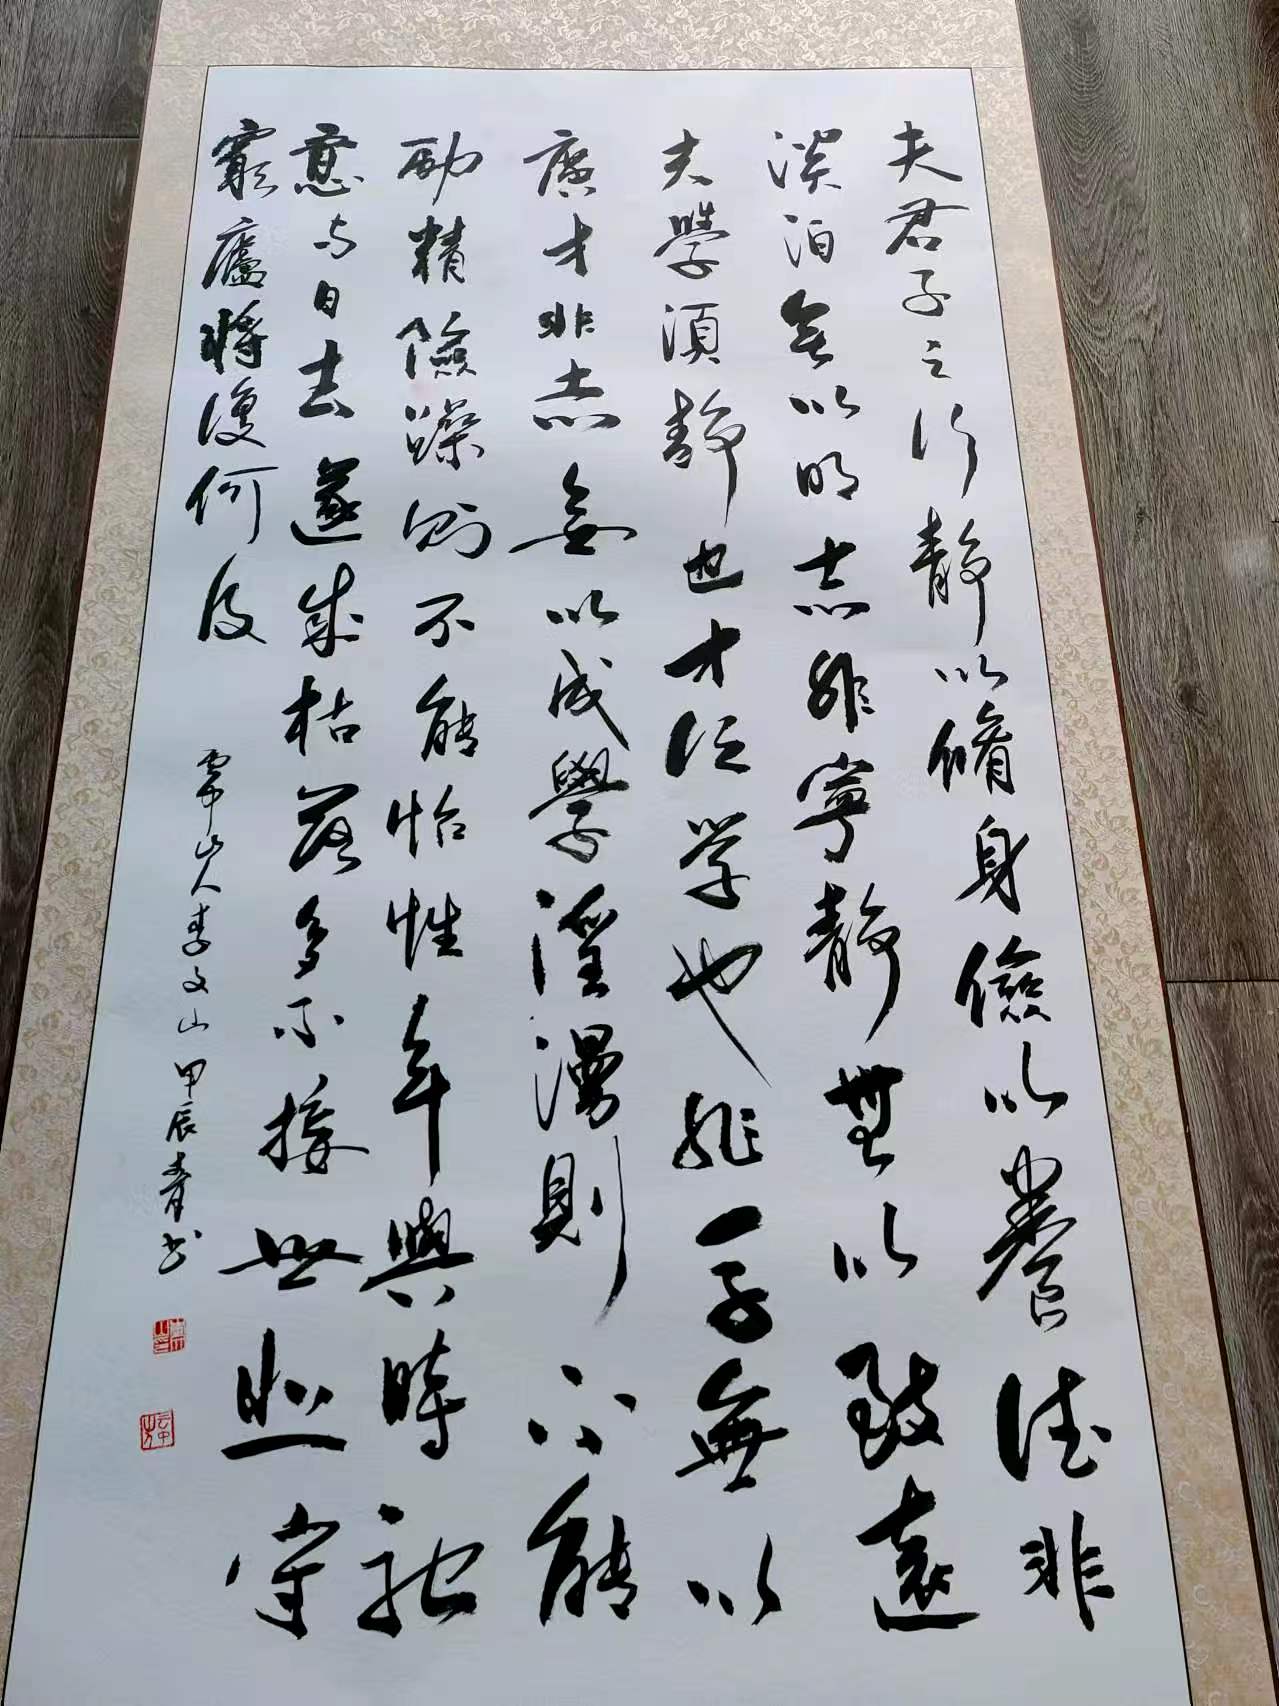 夫君子之行静以脩身儉以養德非
淡泊無以明志非寧静無以致遠
夫學須静也才须学也非学無以
廣才非志無以成學淫漫則不能
励精險躁则不能怡性年與時馳
意与日去遂成枯落多不接世悲守
窮廬將復何及
山人李文山甲辰书